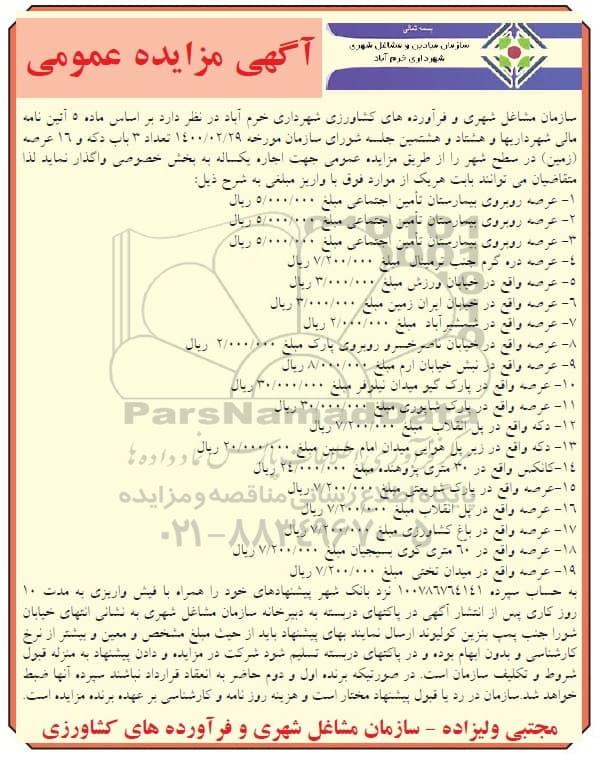 بسمه تعالی
سازمان میادین و مشاغل شهری
شهرداری خرم آباد
آگهی مزایده عمومی
سازمان مشاغل شهری و فرآورده های کشاورزی شهرداری خرم آباد در نظر دارد بر اساس ماده ۵ آئین نامه
مالی شهرداریها و هشتاد و هشتمین جلسه شورای سازمان مورخه ۱۴۰۰/۰۲/۲۹ تعداد ۳ باب دکه و ۱۶ عرصه
(زمین) در سطح شهر را از طریق مزایده عمومی جهت اجاره یکساله به بخش خصوصی واگذار نماید لذا
متقاضیان می توانند بابت هریک از موارد فوق با واریز مبلغی به شرح ذیل:
۱- عرصه روبروی بیمارستان تأمین اجتماعی مبلغ ۵/۰۰۰/۰۰۰ ریال
۲- عرصه روبروی بیمارستان تأمین اجتماعی مبلغ ۵/۰۰۰/۰۰۰ ریال
۳- عرصه روبروی بیمارستان تأمین اجتماعی مبلغ ۵/۰۰۰/۰۰۰ ریال
۴- عرصه دره گرم جنب ترمینال مبلغ ۷/۲۰۰/۰۰۰ ریال
۵- عرصه واقع در خیابان ورزش مبلغ ۳/۰۰۰/۰۰۰ ریال
۶- عرصه واقع در خیابان ایران زمین مبلغ ۳/۰۰۰/۰۰۰ ریال
۷- عرصه واقع در شمشیرآباد مبلغ ۲/۰۰۰/۰۰۰ ریال
۸- عرصه واقع در خیابان ناصرخسرو روبروی پارک مبلغ ۲/۰۰۰/۰۰۰ ریال
۹- عرصه واقع در نبش خیابان ارم مبلغ ۸/۰۰۰/۰۰۰ ریال
۱۰- عرصه واقع در پارک کیو میدان نیلوفر مبلغ ۳۰/۰۰۰/۰۰۰ ریال
۱۱- عرصه واقع در پارک شاپوری مبلغ ۳۰/۰۰۰/۰۰۰ ریال
۱۲- دکه واقع در پل انقلاب مبلغ ۷/۲۰۰/۰۰۰ ریال
۱۳- دکه واقع در زیر پل هوایی میدان امام حسین مبلغ ۲۰/۰۰۰/۰۰۰ ریال
۱۴-کانکس واقع در ۳۰ متری پژوهنده مبلغ ۲۴/۰۰۰/۰۰۰ ریال
۱۵-عرصه واقع در پارک شریعتی مبلغ ۷/۲۰۰/۰۰۰ ریال
۱۶- عرصه واقع در پل انقلاب مبلغ ۷/۲۰۰/۰۰۰ ریال
۱۷- عرصه واقع در باغ کشاورزی مبلغ ۷/۲۰۰/۰۰۰ ریال
۱۸- عرصه واقع در ۶۰ متری کوی بسیجیان مبلغ ۷/۲۰۰/۰۰۰ ریال
۱۹- عرصه واقع در میدان تختی مبلغ ۷/۲۰۰/۰۰۰ ریال
به حساب سپرده ۱۰۰۷۸۶۷۶۴۱۴۱ نزد بانک شهر پیشنهادهای خود را همراه با فیش واریزی به مدت ۱۰
روز کاری پس از انتشار آگهی در پاکتهای دربسته به دبیرخانه سازمان مشاغل شهری به نشانی انتهای خیابان
شورا جنب پمپ بنزین کولیوند ارسال نمایند بهای پیشنهاد باید از حیث مبلغ مشخص و معین و بیشتر از نرخ
کارشناسی و بدون ابهام بوده و در پاکتهای دربسته تسلیم شود شرکت در مزایده و دادن پیشنهاد به منزله قبول
شروط و تکلیف سازمان است. در صورتیکه برنده اول و دوم حاضر به انعقاد قرارداد نباشند سپرده آنها ضبط
خواهد شد.سازمان در رد یا قبول پیشنهاد مختار است و هزینه روز نامه و کارشناسی بر عهده برنده مزایده است.
مجتبی ولیزاده - سازمان مشاغل شهری و فرآورده های کشاورزی
ParsNamadData
پایگاه اطلاع رسانی مناقصه و مزایده
۰۲۱-۸۸۳۴۹۶۷۰-۵